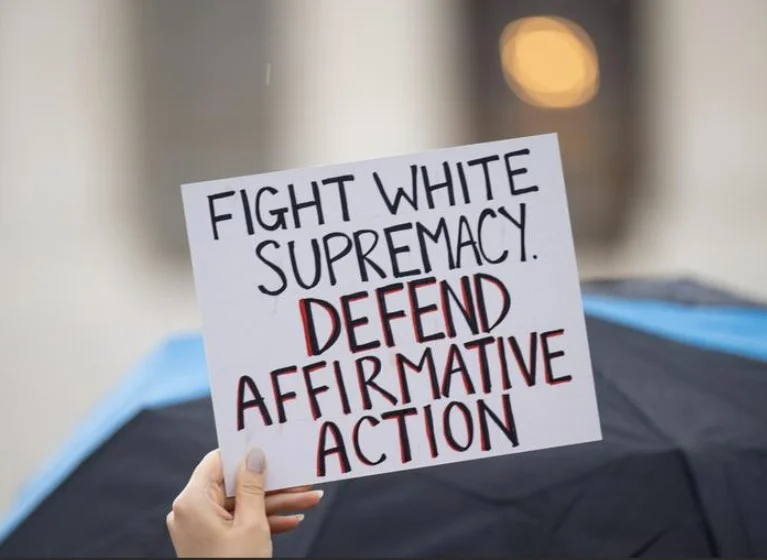 FIGHT WHITE
SUPREMACY.
DEFEND
AFFIRMATIVE
ACTION